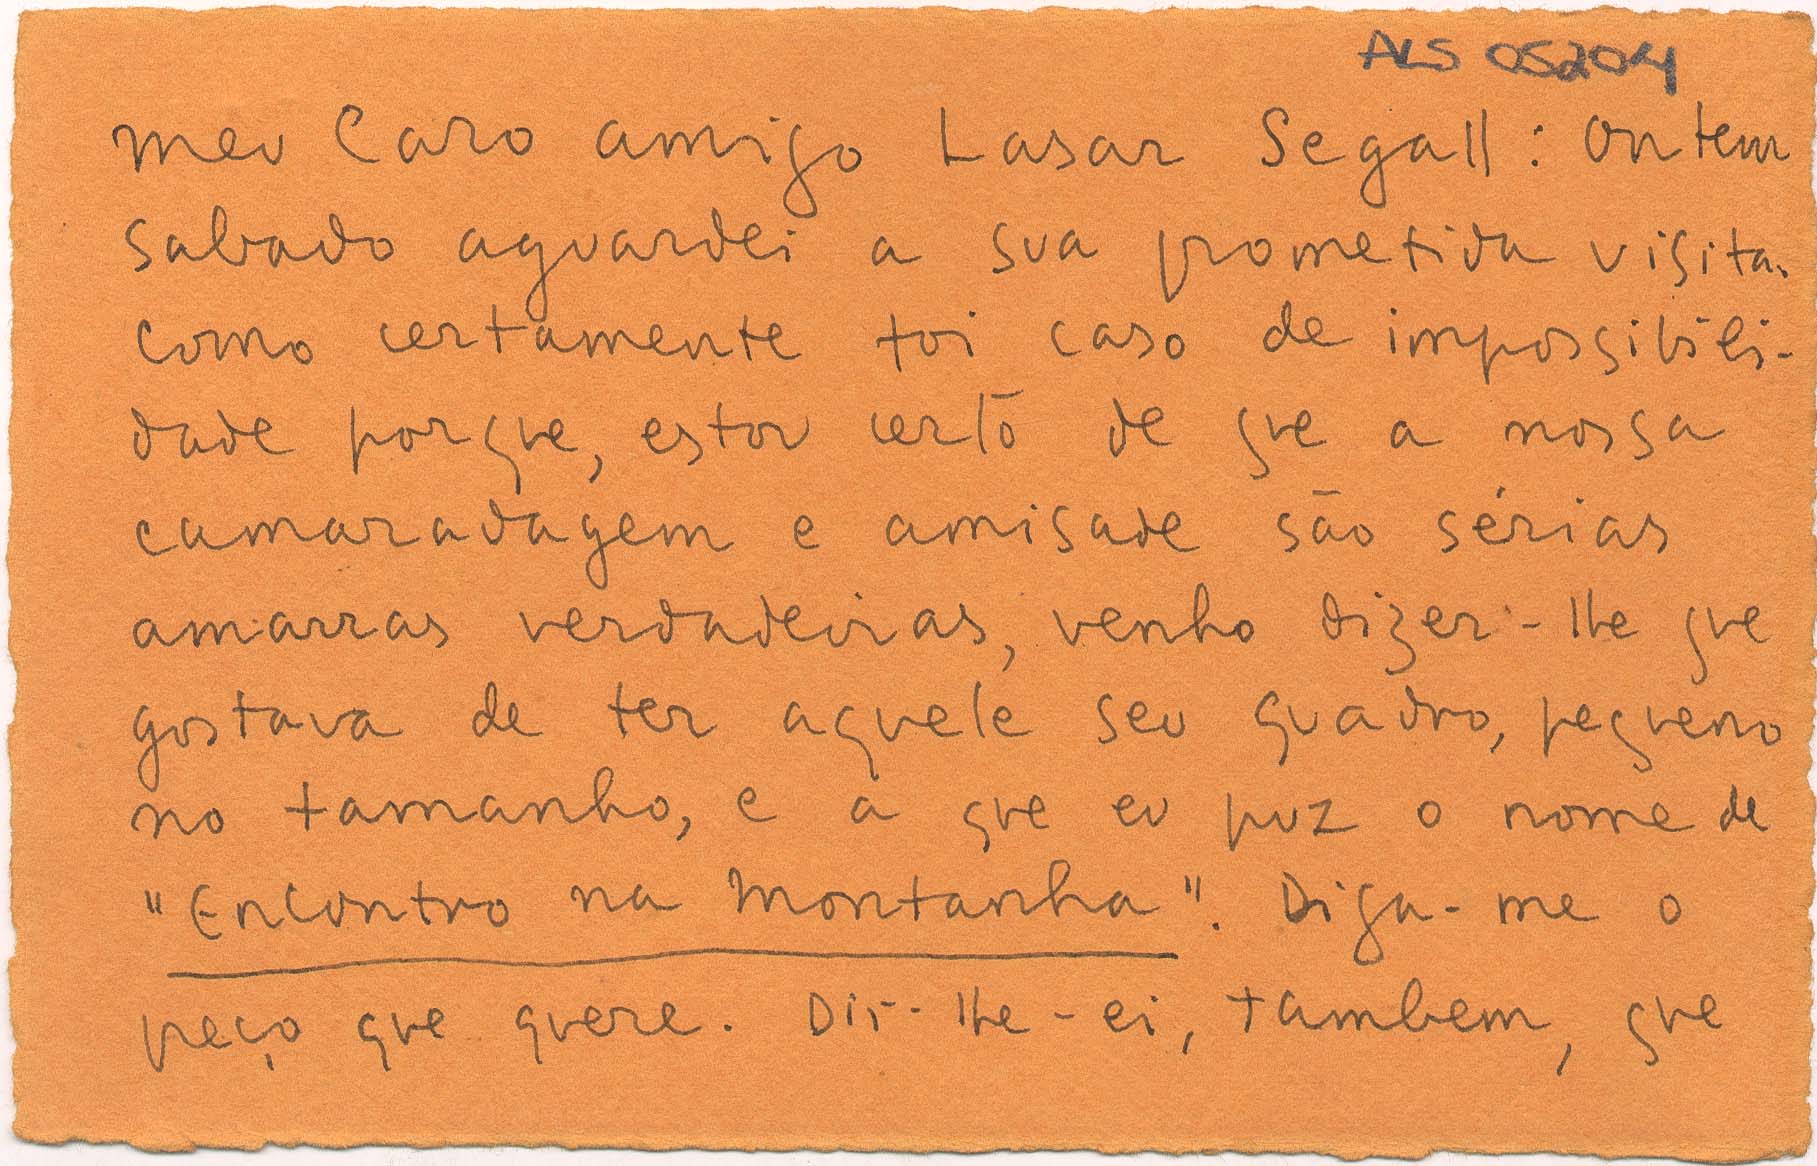 ALS 05204
meu Caro amigo Lasar Segall: Ontem
sabado aguardei a sua prometida visita.
como certamente foi caso de impossibili-
dade porque, estou certo de que a nossa
camaradagem e amisade são sérias
amarras verdadeiras, venho dizer-lhe que
gostava de ter aquele seu quadro, pequeno
no tamanho, e a que eu puz o nome de
"Encontro na Montanha". Diga-me o
peço que quere. Dir-lhe-ei, tambem, que